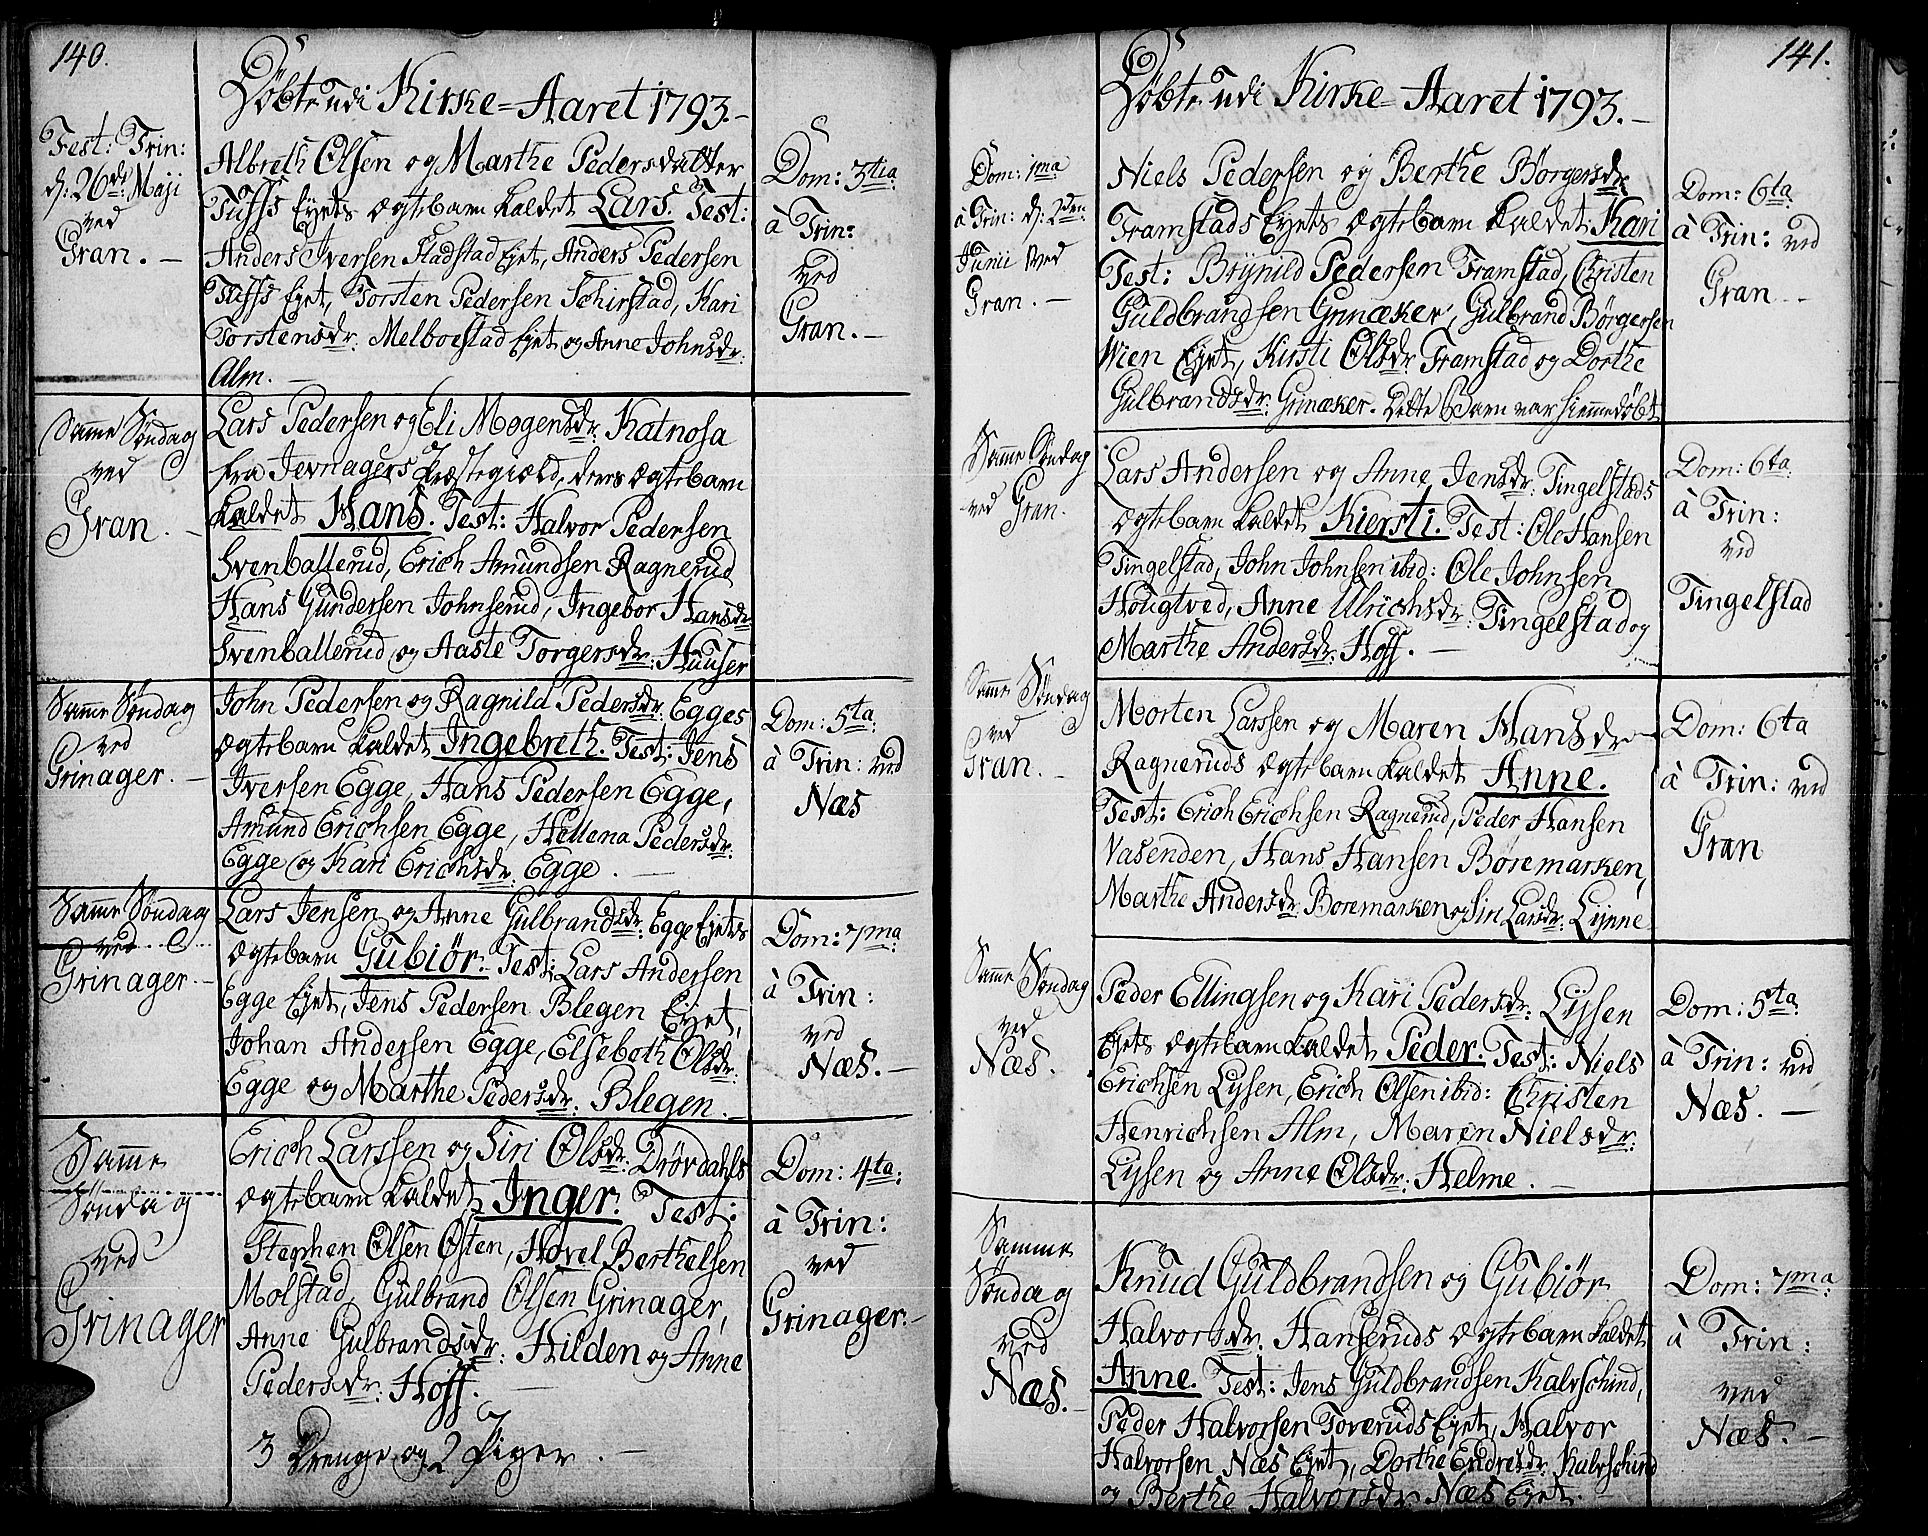 140.
Døbte udi Kirke=Aaret 1793.
Fest: Trin:
d: 26de Maji
ved
Gran.
Albreth Olsen og Marthe Pedersdatter
Tuffs Eyets ægtebarn kaldet Lars. Test:
Anders Iversen Fladstad Eyet, Anders Pedersen
Tuffs Eyet, Torsten Pedersen Schirstad, Kari
Torstensdr: Melboestad Eyet og Anne Johnsdr:
Alm.
Dom: 3tia
à Trin:
ved
Gran.
Samme Søndag
ved
Gran.
Lars Pedersen og Eli Mogensdr: Katnosa
fra Jevnagers Præstegield, deres ægtebarn
kaldet Hans. Test: Halvor Pedersen
Svenballerud, Erich Amundsen Ragnerud
Hans Gundersen Johnserud, Ingebor Hansdr
Svenballerud og Aaste Torgersdr: Huuser
Samme Søndag
ved
Grinager.
John Pedersen og Ragnild Pedersdr: Egges
ægtebarn kaldet Ingebreth. Test: Jens
Iversen Egge, Hans Pedersen Egge,
Amund Erichsen Egge, Hellena Pedersdr:
Egge og Kari Erichsdr: Egge.
Dom: 5ta
à Trin: ved
Næs
Samme Søndag
ved
Grinager.
Lars Jensen og Anne Gulbrandsdr: Egge Eyets
ægtebarn Gubiør. Test: Lars Andersen
Egge Eyet, Jens Pedersen Blegen Eyet,
Johan Andersen Egge, Elsebeth Olsdr:
Egge og Marthe Pedersdr: Blegen.
Dom: 7ma
à Trin:
ved
Næs.
Samme
Søndag
ved
Grinager
Erich Larssen og Siri Olsdr: Drøvdahls
ægtebarn kaldet Inger. Test:
Stephen Olsen Østen, Hovel Berthelsen
Molstad, Gulbrand Olsen Grinager,
Anne Gulbrandsdr: Hilden og Anne
Pedersdr: Hoff.
Dom: 4ta:
à Trin:
ved
Grinager.
3 Drenge og 2 Piger.
141.
Døbte udi Kirke=Aaret 1793.
Dom: 1ma
à Trin: d: 2den
Junii ved
Gran.
Niels Pedersen og Berthe Børgersdr
Framstads Eyets ægtebarn kaldet: Kari
Test: Brynild Pedersen Framstad, Christen
Guldbrandsen Grinæker, Gulbrand Børgersen
Wien Eyet, Kirsti Olsdr: Framstad og Dorthe
Gulbrandsdr: Grinæker. Dette Barn var hiemmedøbt
Dom: 6ta
à Trin: ved
Gran
Samme Søndag
ved Gran.
Lars Andersen og Anne Jensdr: Tingelstads
ægtebarn kaldet Kiersti. Test: Ole Hansen
Tingelstad, John Johnsen ibid: Ole Johnsen
Hougtved, Anne Ulrichsdr: Tingelstad og
Marthe Andersdr: Hoff.
Dom: 6ta
à Trin:
ved
Tingelstad
Samme Søndag
ved
Gran.
Morten Larssen og Maren Hansdr
Ragneruds ægtebarn kaldet Anne.
Test: Erich Erichsen Ragnerud, Peder Hansen
Vasenden, Hans Hansen Børemarken,
Marthe Andersdr: Boremarken og Siri Larsdr: Lynne
Dom: 6ta
à Trin: ved
Gran
Samme Søndag
ved
Næs.
Peder Ellingsen og Kari Pedersdr: Lyssen
Eyets ægtebarn kaldet Peder. Test: Niels
Erichsen Lyssen, Erich Olsen ibid: Christen
Henrichsen Alm, Maren Nielsdr:
Lyssen og Anne Olsdr: Helme.
Dom: 5ta
à Trin: ved
Næs.
Samme
Søndag
ved
Næs.
Knud Guldbrandsen og Gubiør
Halvorsdr: Hanseruds ægtebarn kaldet
Anne. Test: Jens Guldbrandsen Kalvschind,
Peder Halvorsen Toveruds Eyet, Halvor
Halvorsen Næs Eyet, Dorthe Endresdr: Kalvschind
og Berthe Halvorsdr Næs Eyet.
Dom: 7ma
à Trin:
ved
Næs.